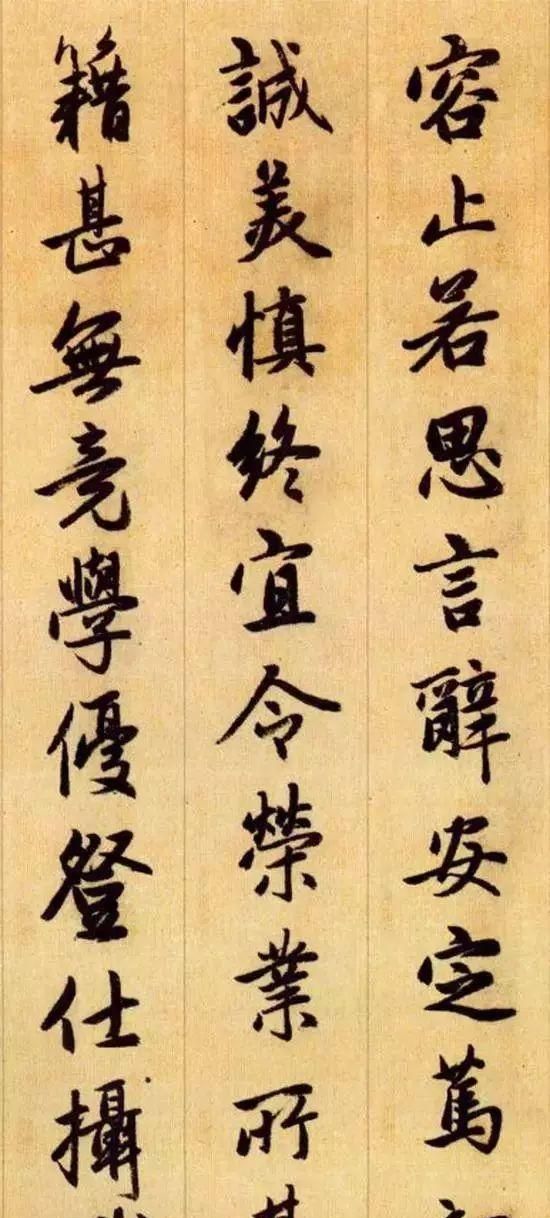 容止若思言辭安定篤
誠美慎終宜令榮業所
籍甚無竟學優登仕攝